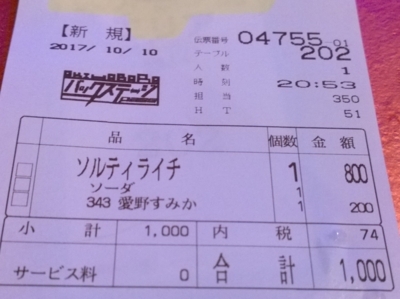 【新 規】
伝票番号 04755-01
2017/10/10
テーブル 202
人 数 1
時 刻 20:53
バックステージ
担 当 350
H T 51
品 名 個数 金 額
ソルティライチ 1 800
ソーダ 1
343 愛野すみか 1 200
小 計 1,000 内 税 74
サービス料 0 合 計 1,000